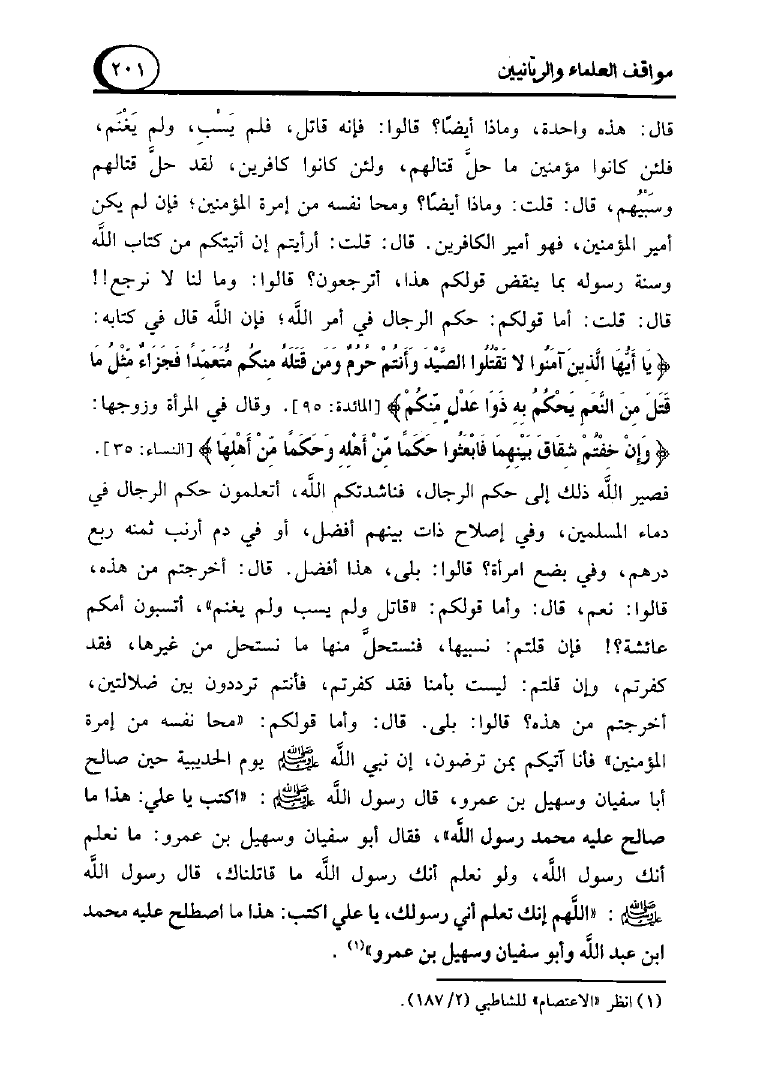 مواقف العلماء والربّانيين
٢٠١
قال: هذه واحدة، وماذا أيضًا؟ قالوا: فإنه قاتل، فلم يَسْبِ، ولم يَغْنَم،
فلئن كانوا مؤمنين ما حلَّ قتالهم، ولئن كانوا كافرين، لقد حلَّ قتالهم
وسَبْيُهم، قال: قلت: وماذا أيضًا؟ ومحا نفسه من إمرة المؤمنين؛ فإن لم يكن
أمير المؤمنين، فهو أمير الكافرين. قال: قلت: أرأيتم إن أتيتكم من كتاب اللَّه
وسنة رسوله بما ينقض قولكم هذا، أترجعون؟ قالوا: وما لنا لا نرجع!!
قال: قلت: أما قولكم: حكم الرجال في أمر اللَّه؛ فإن اللَّه قال في كتابه:
﴿ يَا أَيُّهَا الَّذِينَ آمَنُوا لا تَقْتُلُوا الصَّيْدَ وَأَنتُمْ حُرُمٌ وَمَن قَتَلَهُ مِنكُم مُّتَعَمِّدًا فَجَزَاءٌ مِّثْلُ مَا
قَتَلَ مِنَ النَّعَمِ يَحْكُمُ بِهِ ذَوَا عَدْلٍ مِّنكُمْ﴾ [المائدة: ٩٥]. وقال في المرأة وزوجها:
﴿ وَإِنْ خِفْتُمْ شِقَاقَ بَيْنِهِمَا فَابْعَثُوا حَكَمًا مِّنْ أَهْلِهِ وَحَكَمًا مِّنْ أَهْلِهَا ﴾ [النساء: ٣٥].
فصير اللَّه ذلك إلى حكم الرجال، فناشدتكم اللَّه، أتعلمون حكم الرجال في
دماء المسلمين، وفي إصلاح ذات بينهم أفضل، أو في دم أرنب ثمنه ربع
درهم، وفي بضع امرأة؟ قالوا: بلى، هذا أفضل. قال: أخرجتم من هذه،
قالوا: نعم، قال: وأما قولكم: «قاتل ولم يسب ولم يغنم»، أتسبون أمكم
عائشة؟! فإن قلتم: نسبيها، فنستحلَّ منها ما نستحل من غيرها، فقد
كفرتم، وإن قلتم: ليست بأمنا فقد كفرتم، فأنتم ترددون بين ضلالتين،
أخرجتم من هذه؟ قالوا: بلى. قال: وأما قولكم: «محا نفسه من إمرة
المؤمنين» فأنا آتيكم بمن ترضون، إن نبي اللَّه ﷺ يوم الحديبية حين صالح
أبا سفيان وسهيل بن عمرو، قال رسول اللَّه ﷺ : «اكتب يا علي: هذا ما
صالح عليه محمد رسول اللَّه»، فقال أبو سفيان وسهيل بن عمرو: ما نعلم
أنك رسول اللَّه، ولو نعلم أنك رسول اللَّه ما قاتلناك، قال رسول اللَّه
ﷺ : «اللَّهم إنك تعلم أني رسولك، يا علي اكتب: هذا ما اصطلح عليه محمد
ابن عبد اللَّه وأبو سفيان وسهيل بن عمرو»(١) .
(١) انظر «الاعتصام» للشاطبي (٢/ ١٨٧).